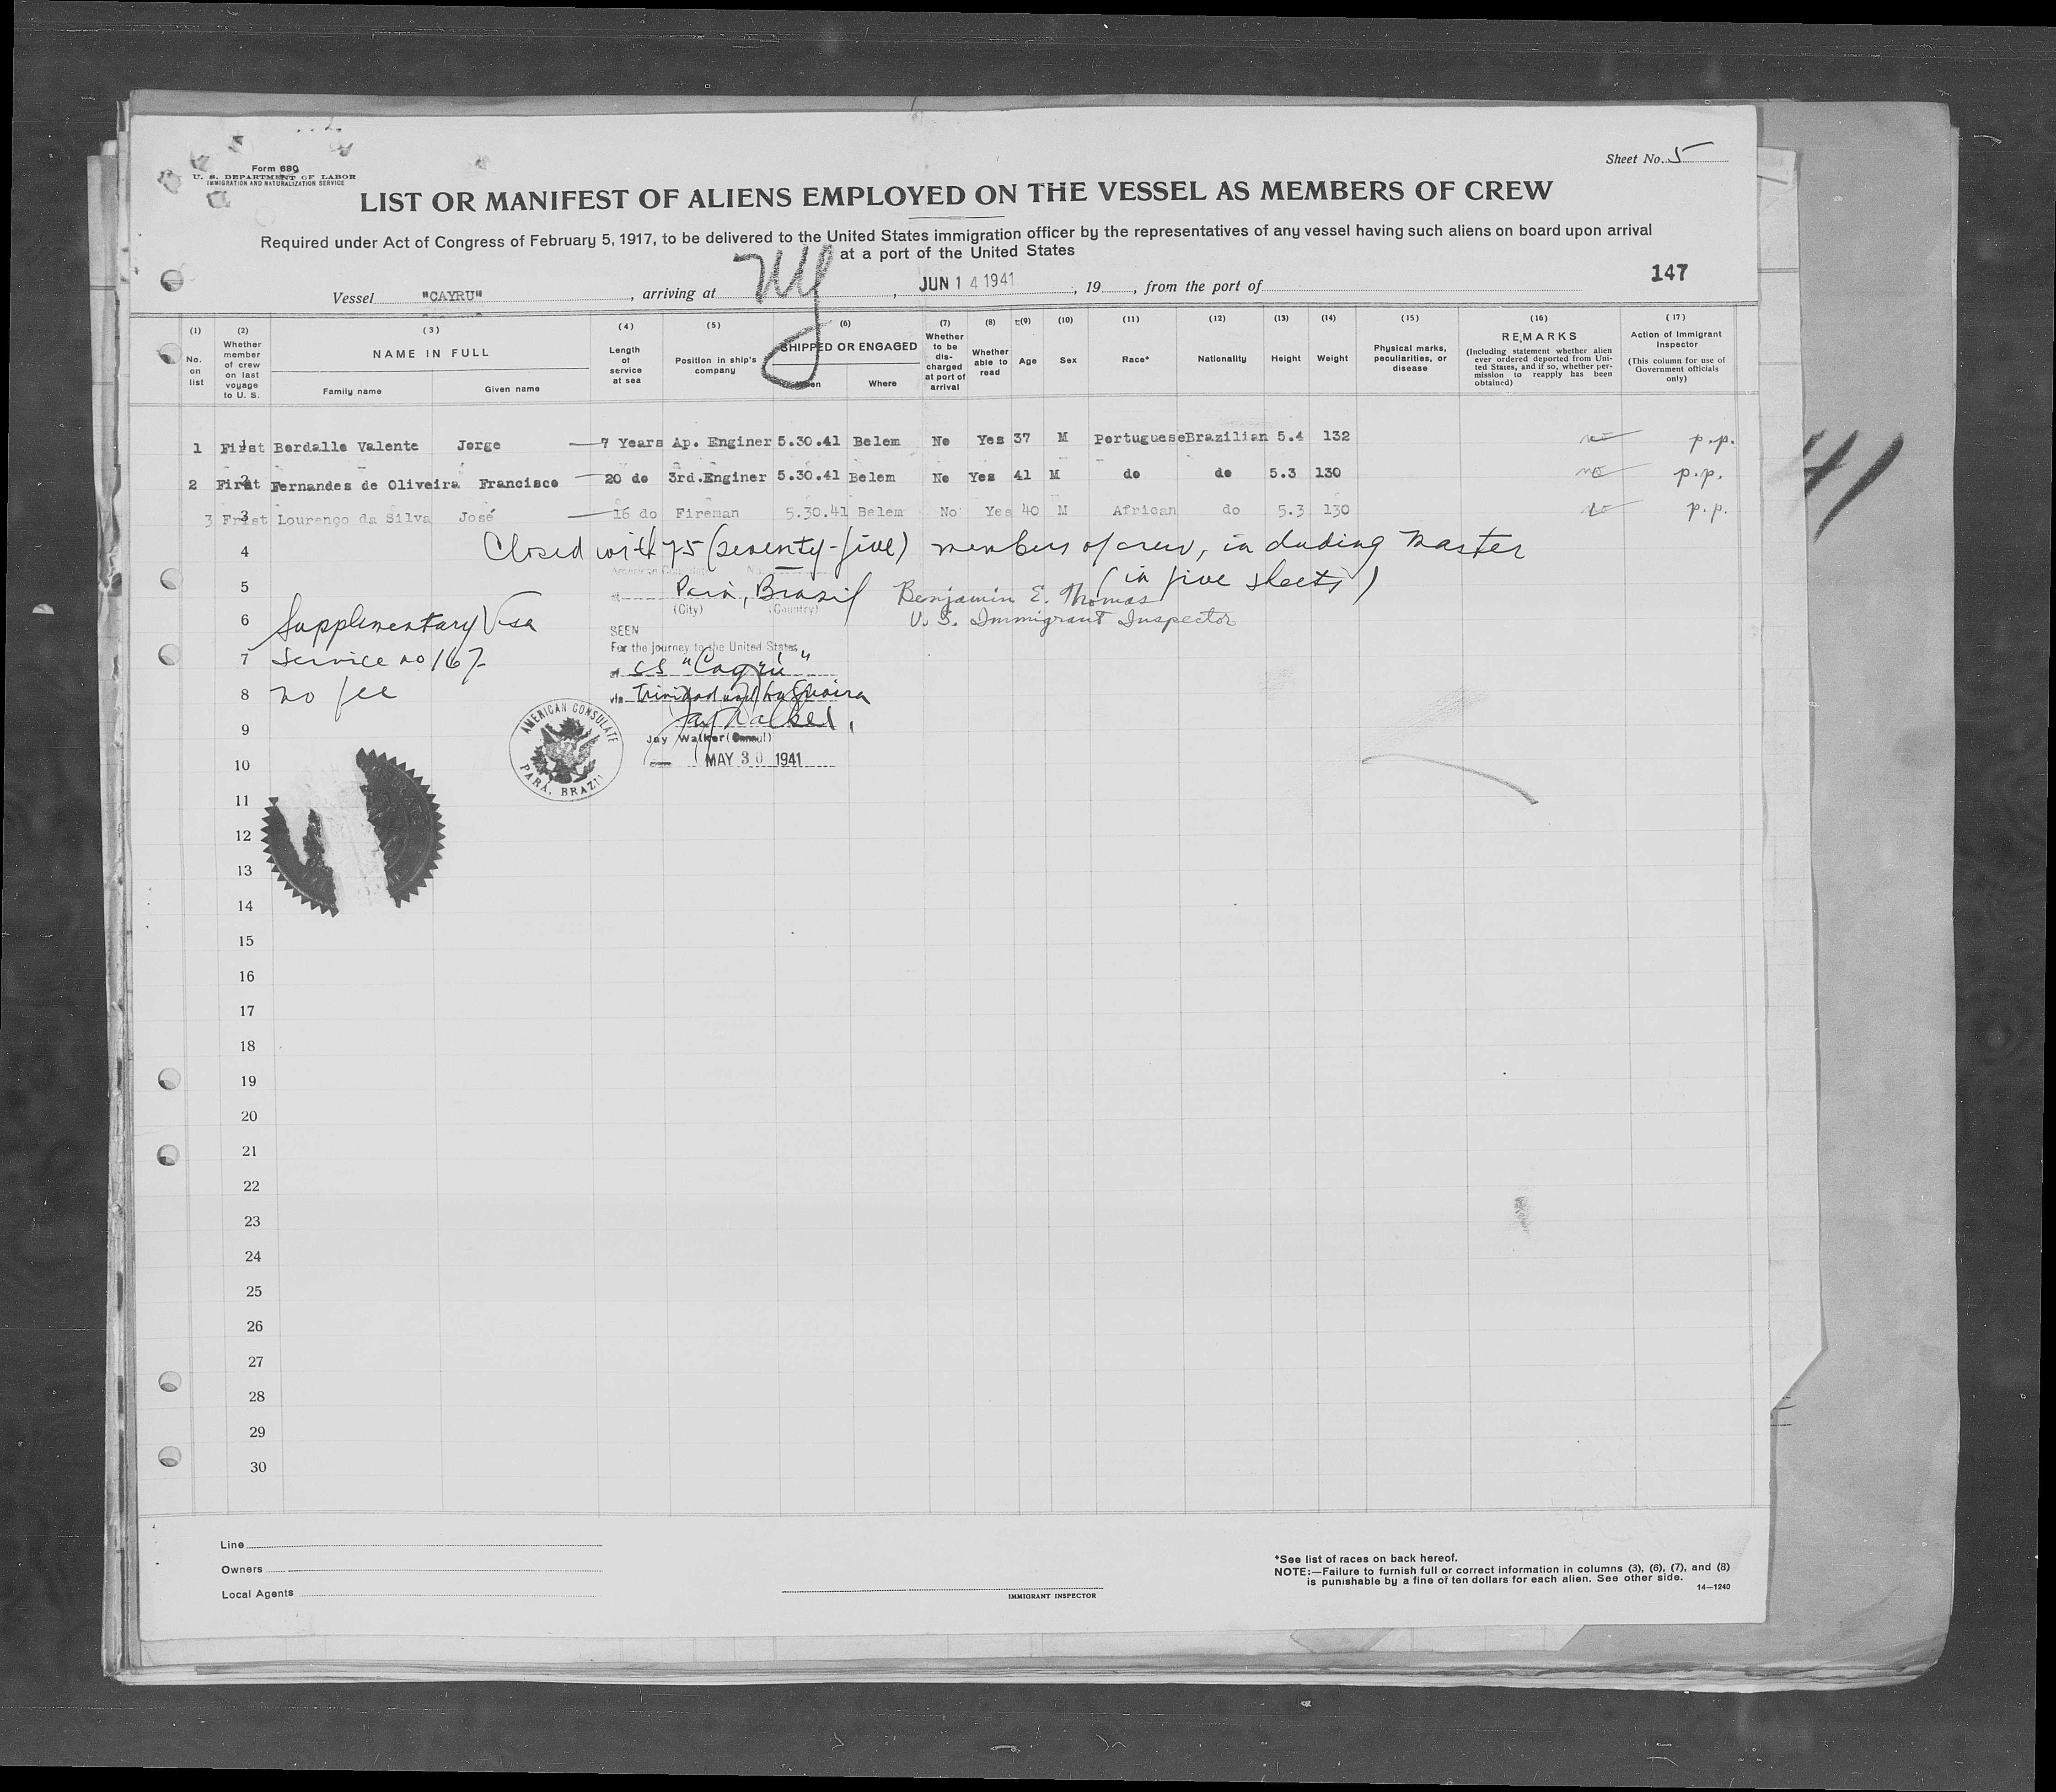 Sheet No. 5
Form 680
U. S. DEPARTMENT OF LABOR
IMMIGRATION AND NATURALIZATION SERVICE
LIST OR MANIFEST OF ALIENS EMPLOYED ON THE VESSEL AS MEMBERS OF CREW
Required under Act of Congress of February 5, 1917, to be delivered to the United States immigration officer by the representatives of any vessel having such aliens on board upon arrival
at a port of the United States
147
Vessel "CAYRU", arriving at NY, JUN 14 1941, 19, from the port of
(1) (2) (3) (4) (5) (6) (7) (8) (9) (10) (11) (12) (13) (14) (15) (16) (17)
No. on list
Whether member of crew on last voyage to U. S.
NAME IN FULL
Family name
Given name
Length of service at sea
Position in ship's company
SHIPPED OR ENGAGED
When
Where
Whether to be discharged at port of arrival
Whether able to read
Age
Sex
Race*
Nationality
Height
Weight
Physical marks, peculiarities, or disease
REMARKS
(Including statement whether alien ever ordered deported from United States, and if so, whether permission to reapply has been obtained)
Action of Immigrant Inspector
(This column for use of Government officials only)
1 First 1 Bordallo Valente Jorge 7 Years Ap. Enginer 5.30.41 Belem No Yes 37 M Portuguese Brazilian 5.4 132 no p.p.
2 First 2 Fernandes de Oliveira Francisco 20 do 3rd.Enginer 5.30.41 Belem No Yes 41 M do do 5.3 130 no p.p.
3 Frist 3 Lourenço da Silva José 16 do Fireman 5.30.41 Belem No Yes 40 M African do 5.3 130 no p.p.
4 Closed with 75 (seventy-five) members of crew, including Master
(in five sheets)
American Consulate No.
5
at Pará, Brazil
(City) (Country)
Benjamin E. Thomas
U. S. Immigrant Inspector
6 Supplementary Visa
SEEN
For the journey to the United States
7 Service no 167
SS "Cayrú"
8 no fee
via Trinidad and La Guaira
9 Jay Walker
Jay Walker (Consul)
10 MAY 30 1941
AMERICAN CONSULATE
PARÁ, BRAZIL
11
12
13
14
15
16
17
18
19
20
21
22
23
24
25
26
27
28
29
30
41
Line
Owners
Local Agents
IMMIGRANT INSPECTOR
*See list of races on back hereof.
NOTE:—Failure to furnish full or correct information in columns (3), (6), (7), and (8)
is punishable by a fine of ten dollars for each alien. See other side.
14—1240